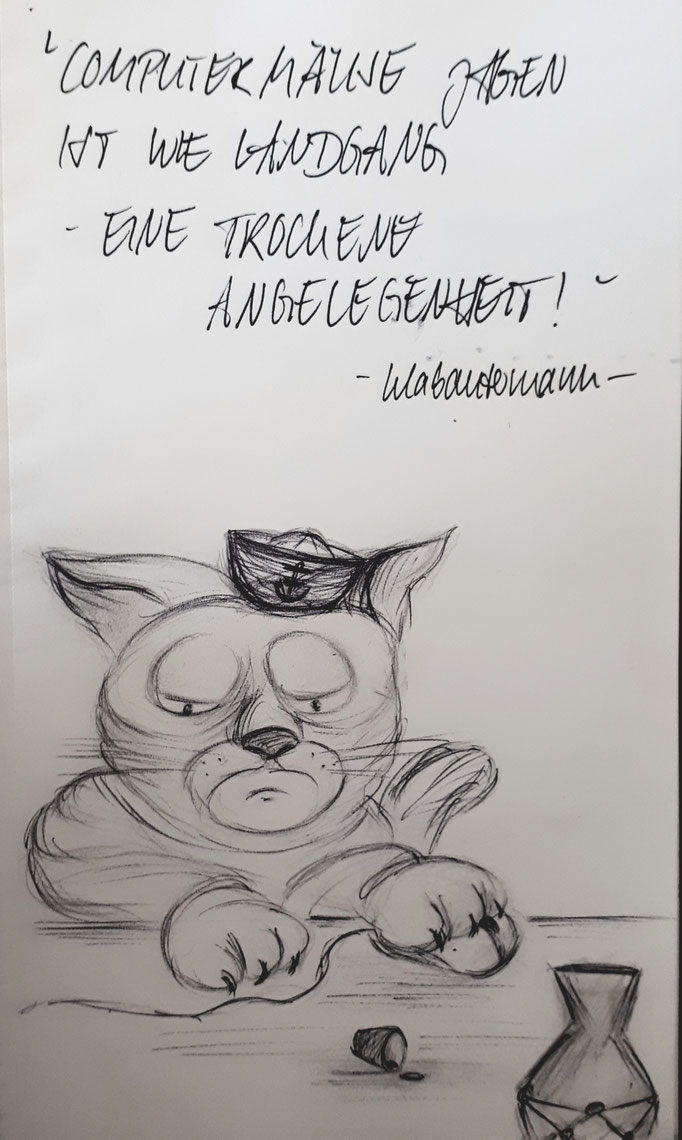 "COMPUTERMÄUSE JAGEN
IST WIE LANDGANG
- EINE TROCKENE
ANGELEGENHEIT!"
- Klabautermann -